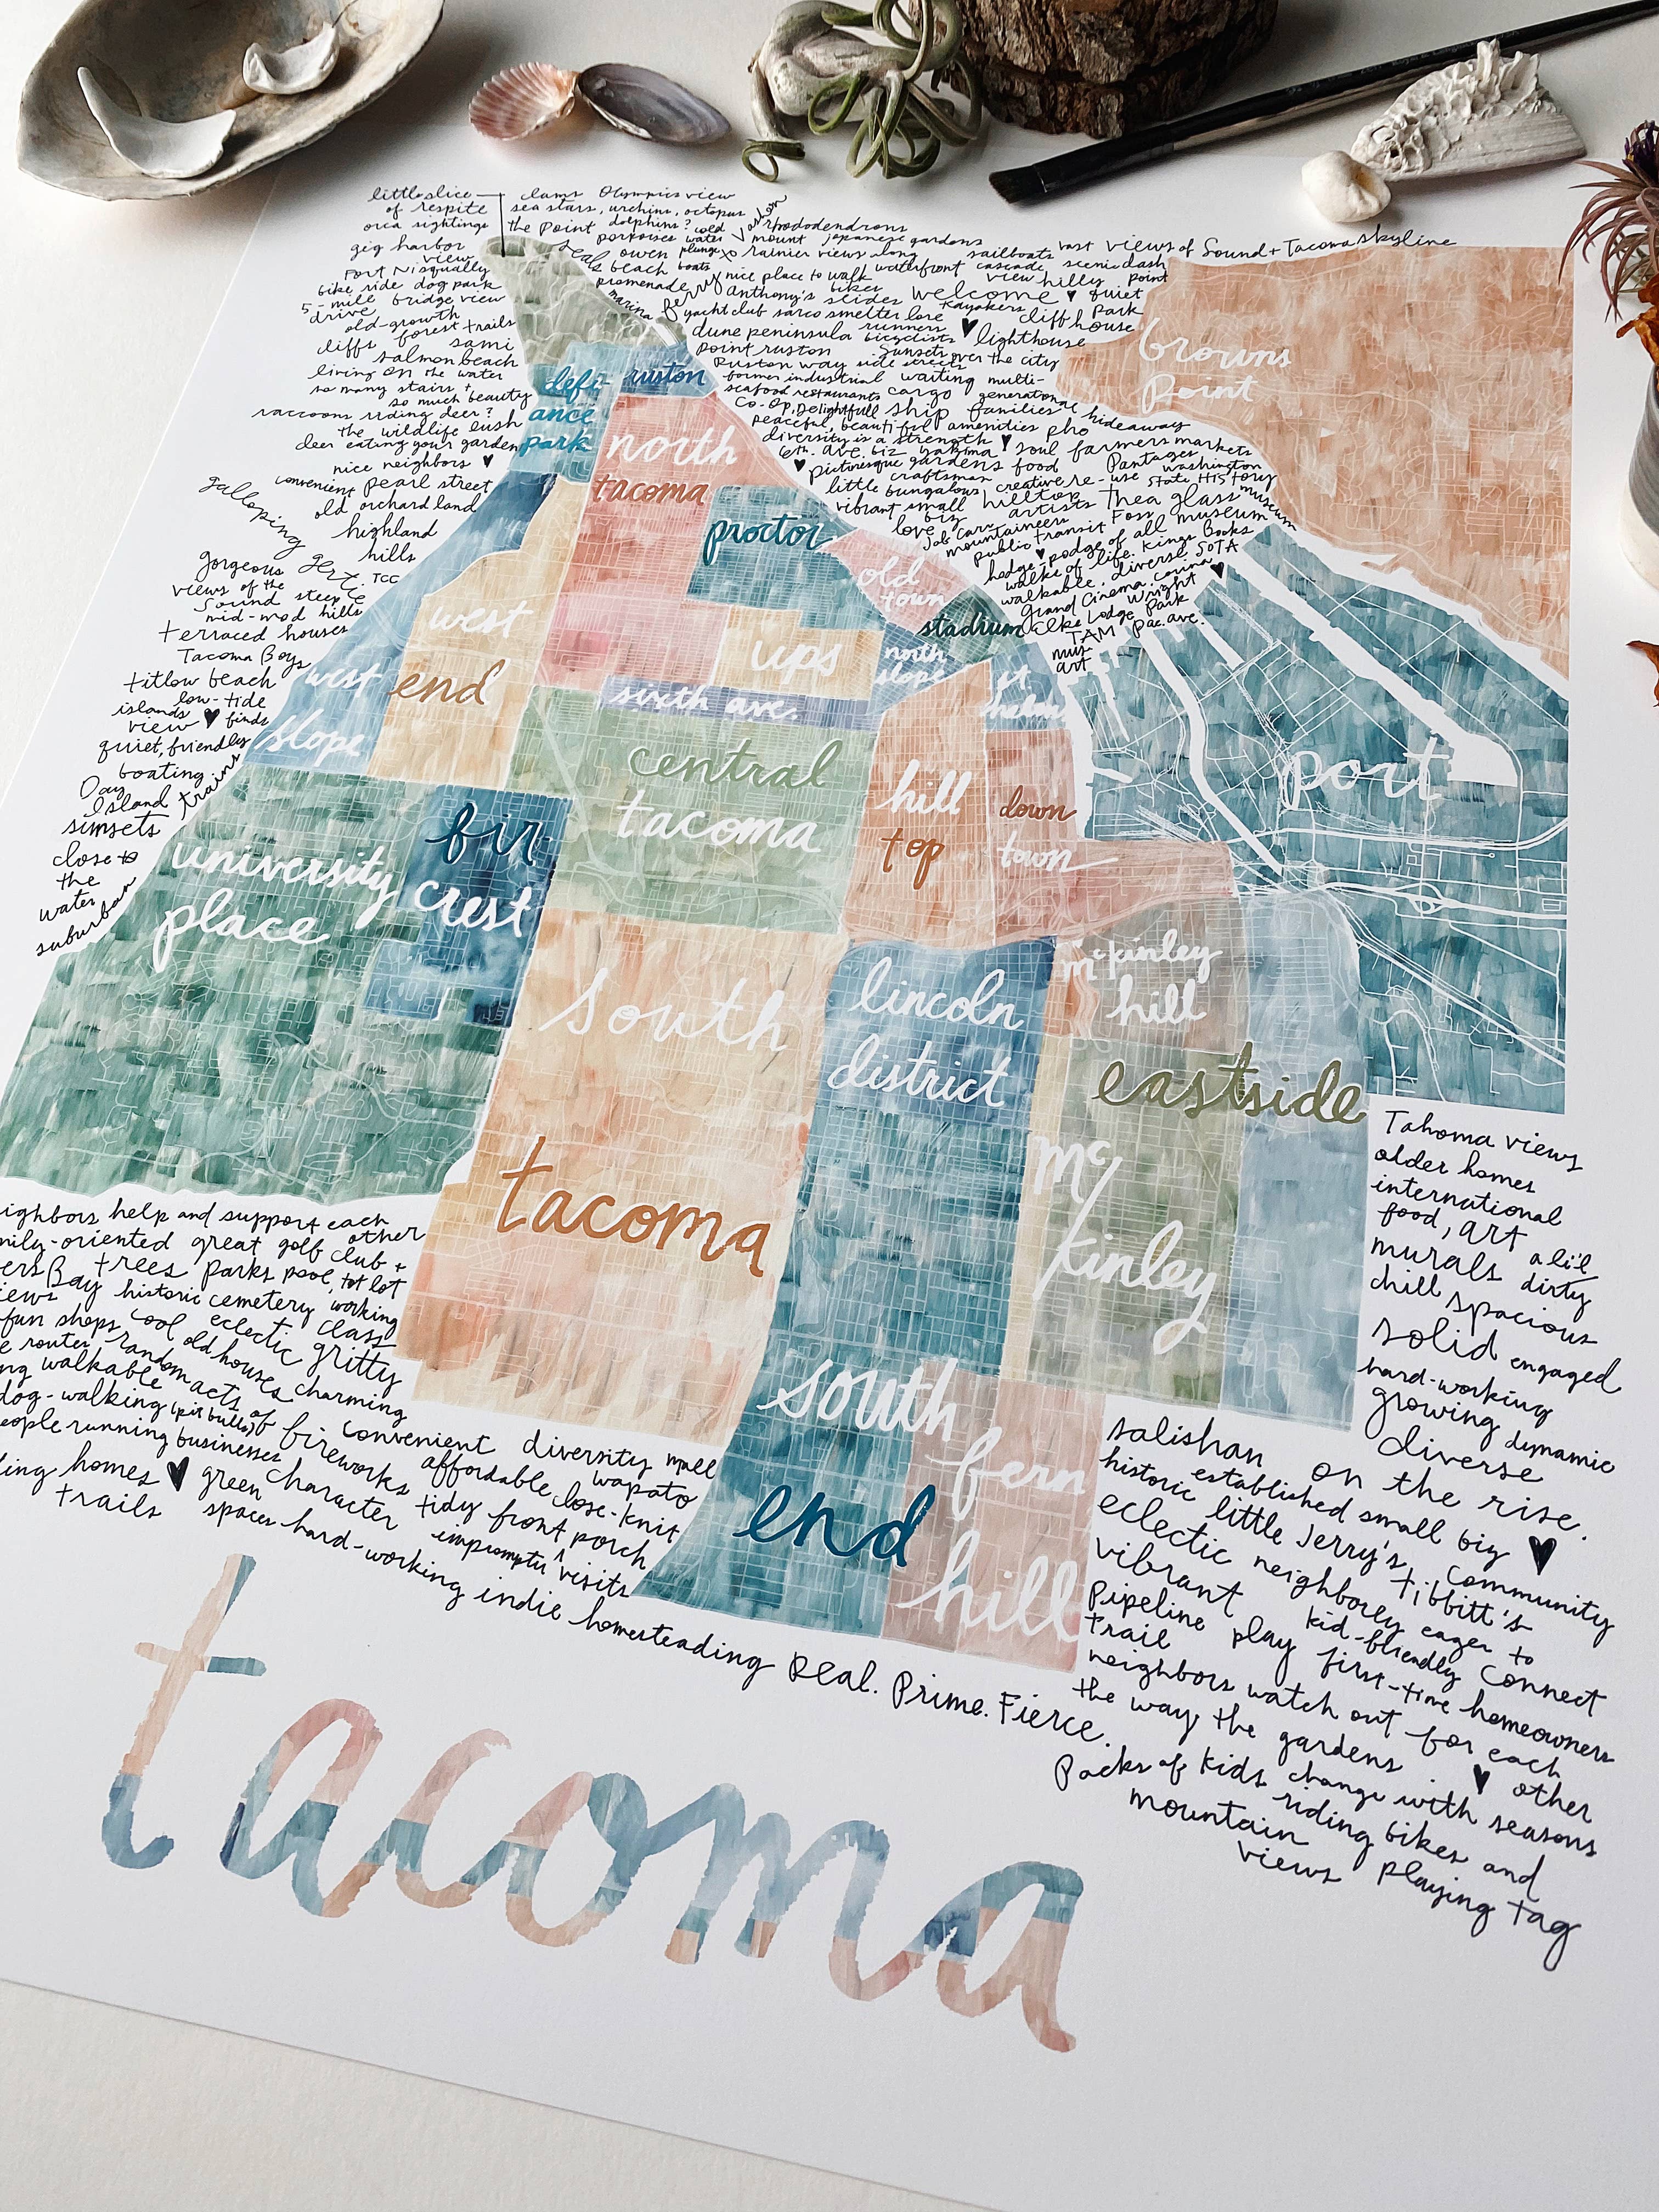 little slice
of respite
orca sightings
gig harbor
view
Fort Nisqually
bike ride dog park
5-mile bridge view
drive
old-growth
cliffs forest trails
sami
salmon beach
living on the water
so many stairs +
so much beauty
raccoons riding deer?
the wildlife lush
deer eating your garden
nice neighbors ♥
convenient pearl street
old orchard land
galloping
gertie
highland
hills
gorgeous
TCC
views of the
Sound steep
mid-mod hills
terraced houses
Tacoma Boys
titlow beach
low-tide
islands
view ♥ finds
quiet, friendly
boating
Day
Island trains
sunsets
close to
the
water
suburban
clams Olympics view
sea stars, urchins, octopus
the Point dolphins? cold
porpoises water
plunge
owen
beach boats
promenade
marina
ferry
rhododendrons
mount japanese gardens
rainier views along
nice place to walk waterfront
sailboats vast views of Sound + Tacoma skyline
cascade scenic dash
view hilly point
Anthony's slides bikes welcome ♥ quiet
park
yacht club sarco smelter lore kayakers cliff house
dune peninsula runners ♥ lighthouse
bicyclists
point ruston sunsets over the city
Ruston way side streets
former industrial waiting multi-
generational
seafood restaurants cargo
Co-Op, Delightfull ship families hideaway
peaceful, beautiful amenities pho
diversity is a strength ♥ soul farmers markets
6th. ave. biz yakima food Pantages
♥ picturesque gardens washington
craftsman State History
little bungalows creative re-use museum
vibrant small hilltop Thea glass
biz artists Foss museum
love Job Carr
mountaineers
public transit
hodge-podge of all
walks of life. Kings Books
walkable. diverse. SOTA
Grand Cinema. carina ♥
elks Lodge Wright
Park
TAM pac. ave.
mus
art
defi-
ance
park
ruston
browns
Point
north
tacoma
proctor
old
town
stadium
west
end
ups
north
slope
st
helens
west
slope
sixth ave.
central
tacoma
hill
top
down
town
port
university
place
fir
crest
south
tacoma
lincoln
district
mckinley
hill
eastside
mc
kinley
south
end
fern
hill
Tahoma views
older homes
international
food, art
murals a li'l
dirty
chill
spacious
solid engaged
hard-working
growing dynamic
diverse
salishan on the rise.
historic established small biz ♥
little Jerry's, community
eclectic neighborly Tibbitt's
vibrant eager to
kid-friendly connect
Pipeline play first-time homeowners
Trail
neighbors watch out for each
other
the way the gardens ♥
change with seasons
Packs of kids riding bikes and
mountain
views playing tag
neighbors help and support each
other
family-oriented great golf club +
trees parks pool, tot lot
Bay historic cemetery working
class
views
fun shops cool eclectic gritty
old houses
random acts of fireworks
walkable charming
dog-walking (pit bulls)
people running businesses
homes ♥ green character
trails spaces
convenient diversity mall
affordable wapato
close-knit
tidy front porch
impromptu ^ visits
hard-working indie homesteading Real. Prime. Fierce.
tacoma